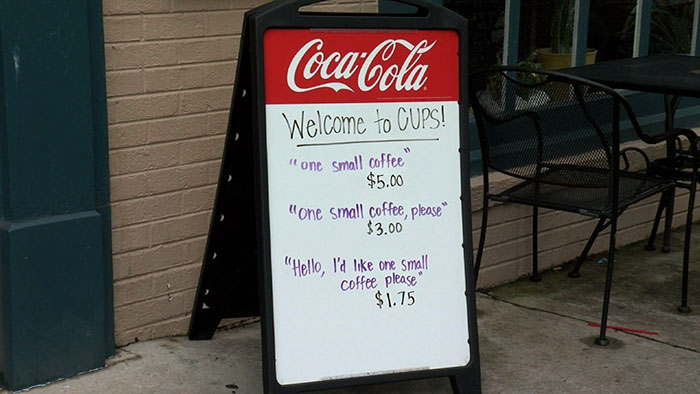 Coca-Cola
Welcome to CUPS!
"one small coffee"
$5.00
"one small coffee, please"
$3.00
"Hello, I'd like one small
coffee please"
$1.75